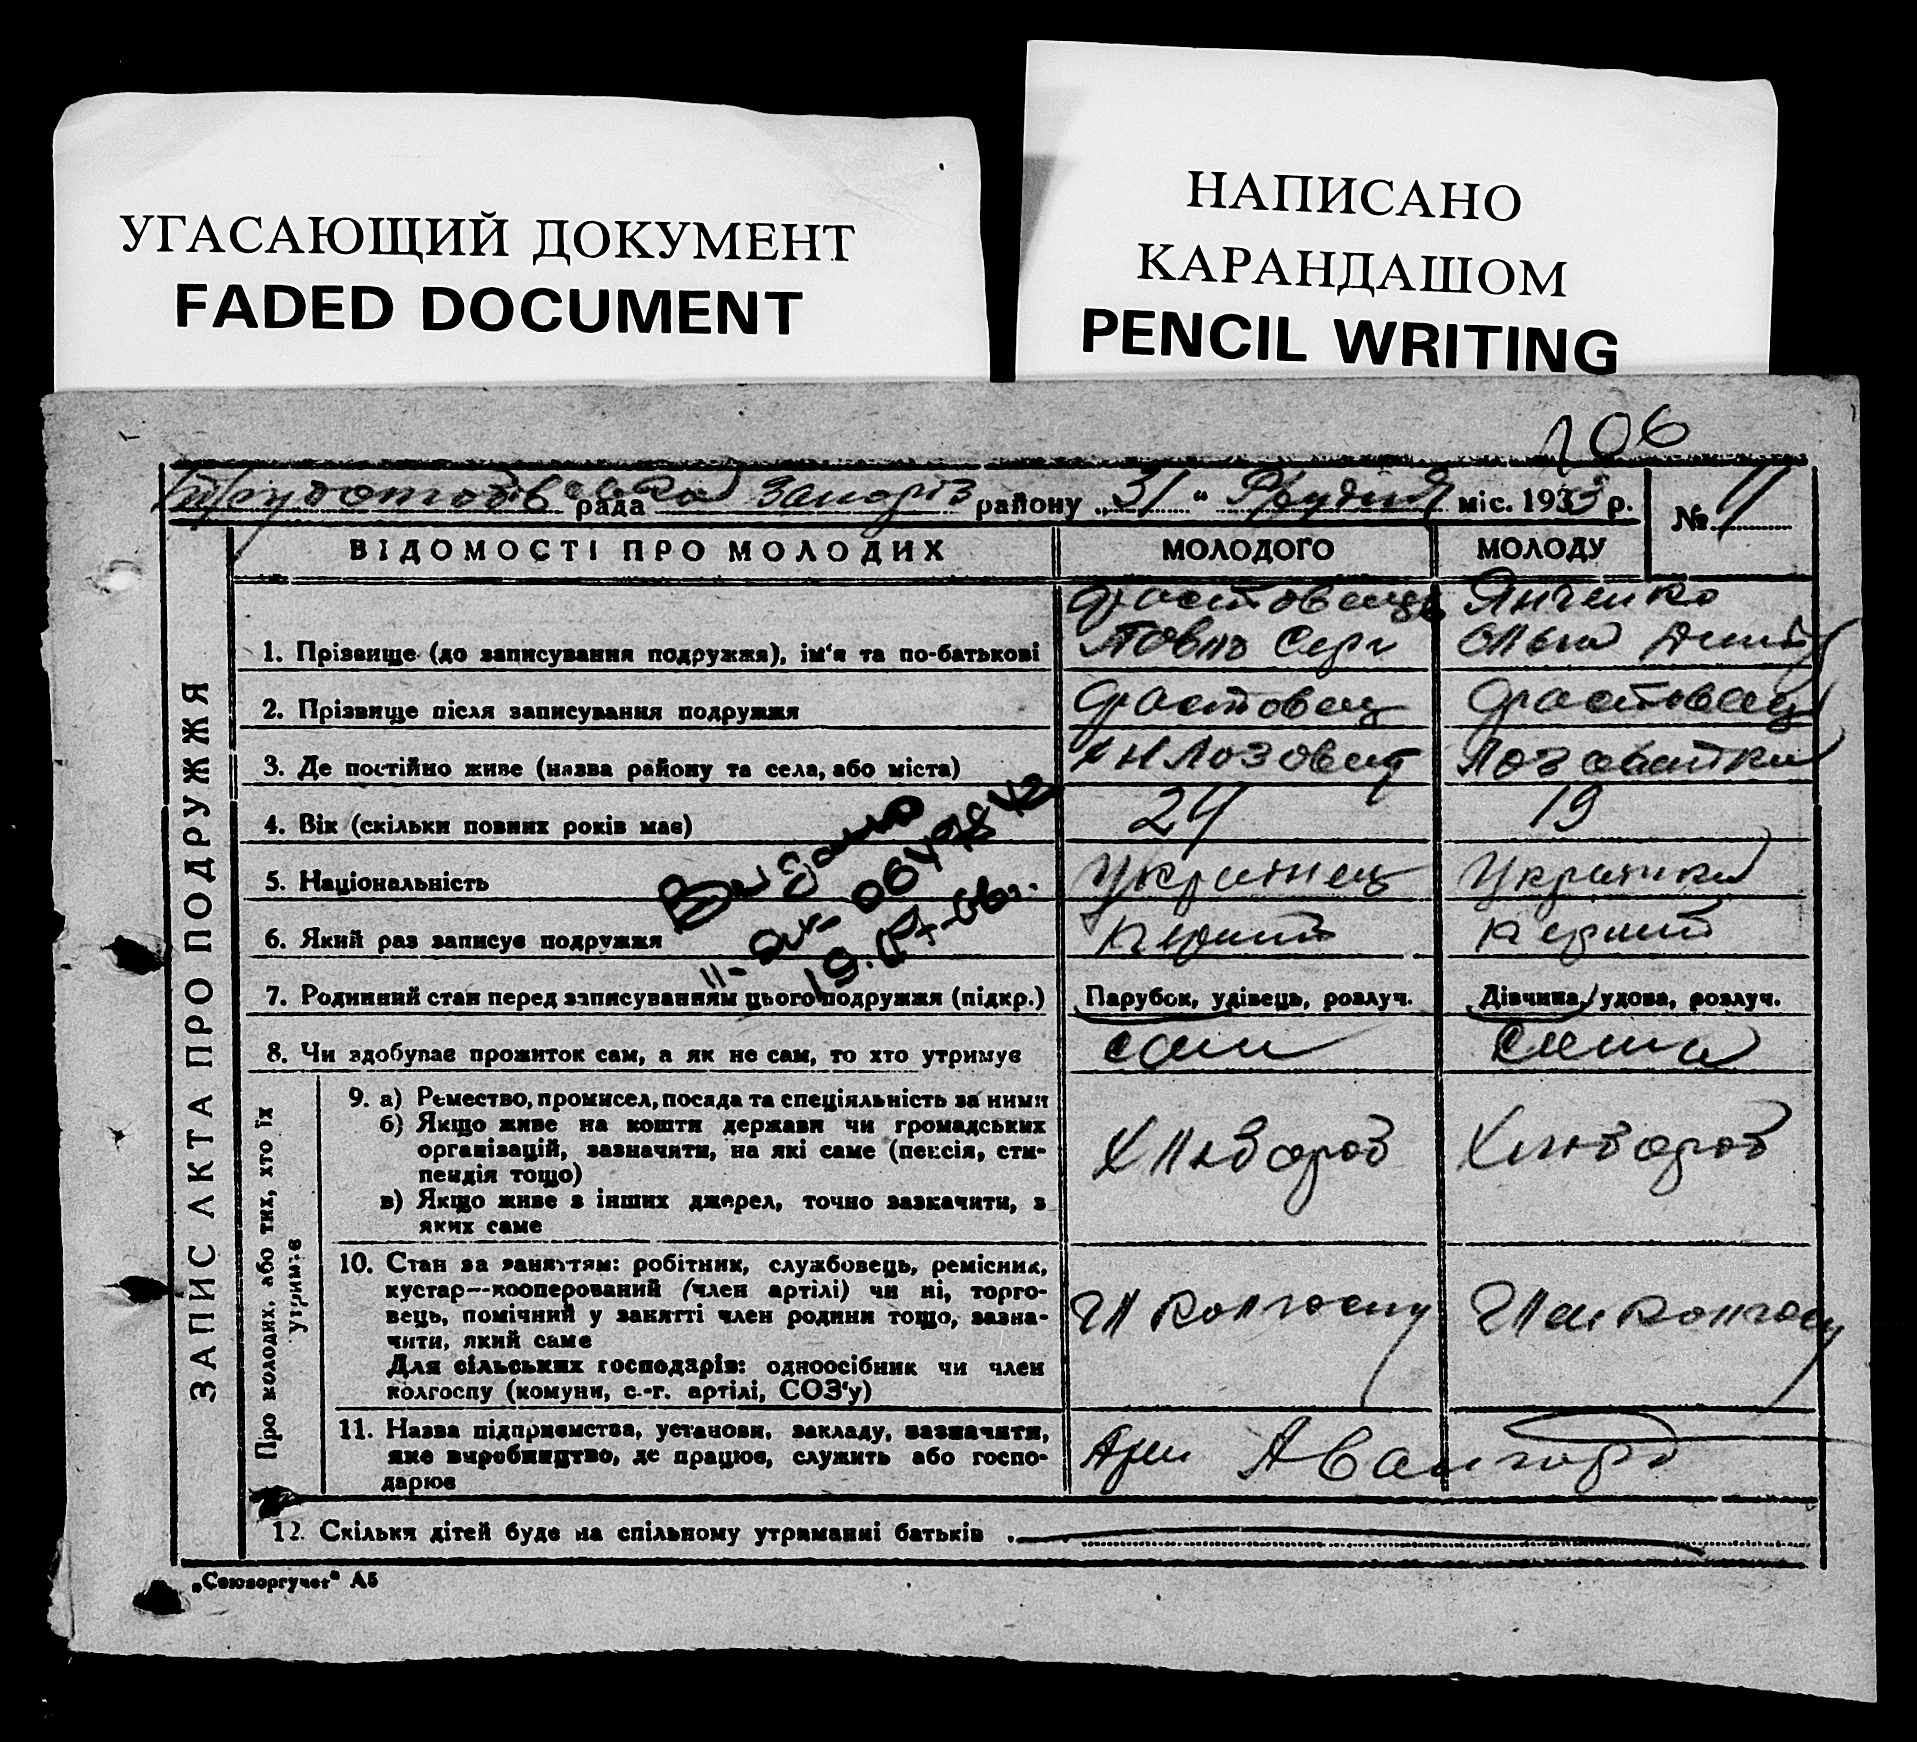 УГАСАЮЩИЙ ДОКУМЕНТ
FADED DOCUMENT
НАПИСАНО
КАРАНДАШОМ
PENCIL WRITING
106
рада Запоріз району „31“ Грудня міс. 1933 р. № 11
ЗАПИС АКТА ПРО ПОДРУЖЖЯ
ВІДОМОСТІ ПРО МОЛОДИХ МОЛОДОГО МОЛОДУ
1. Прізвище (до записування подружжя), ім'я та по-батькові Фастовець Янченко
Серг Дмит
2. Прізвище після записування подружжя Фастовец Фастовец
3. Де постійно живе (назва району та села, або міста) Лозоват
4. Вік (скільки повних років має) 24 19
5. Національність Українец Українка
6. Який раз записує подружжя перший перший
7. Родинний стан перед записуванням цього подружжя (підкр.) Парубок, удівець, розлуч. Дівчина, удова, розлуч.
8. Чи здобуває прожиток сам, а як не сам, то хто утримує сам сама
Про молодих, або тих, хто їх утримує
9. а) Ремество, промисел, посада та спеціяльність за ними Хлібороб Хлібороб
б) Якщо живе на кошти держави чи громадських
організацій, зазначити, на які саме (пенсія, сти-
пендія тощо)
в) Якщо живе з інших джерел, точно зазначити, з
яких саме
10. Стан за заняттям: робітник, службовець, ремісник,
кустар—кооперований (член артілі) чи ні, торго-
вець, помічний у занятті член родини тощо, зазна-
чити, який саме
Для сільських господарів: одноосібник чи член
колгоспу (комуни, с.-г. артілі, СОЗ'у)
чл колгоспу член колгоспу
11. Назва підприємства, установи, закладу, зазначити,
яке виробництво, де працює, служить або госпо-
дарює
Арт Авангард
12. Скільки дітей буде на спільному утриманні батьків
Видано
„Союзоргучет" А5